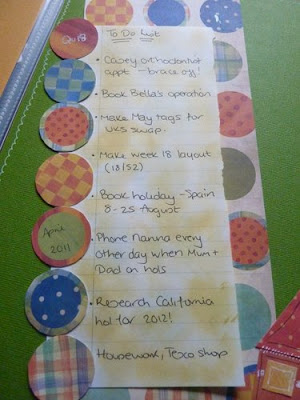 To Do List
• Casey orthodontist
appt - brace off!
• Book Bella's operation
• Make May tags for
UKS swap.
• Make week 18 layout
(18/52)
• Book holiday - Spain
8 - 25 August
• Phone nanna every
other day when Mum +
Dad on hols
• Research California
hol for 2012!
Housework, Tesco shop
April
2011